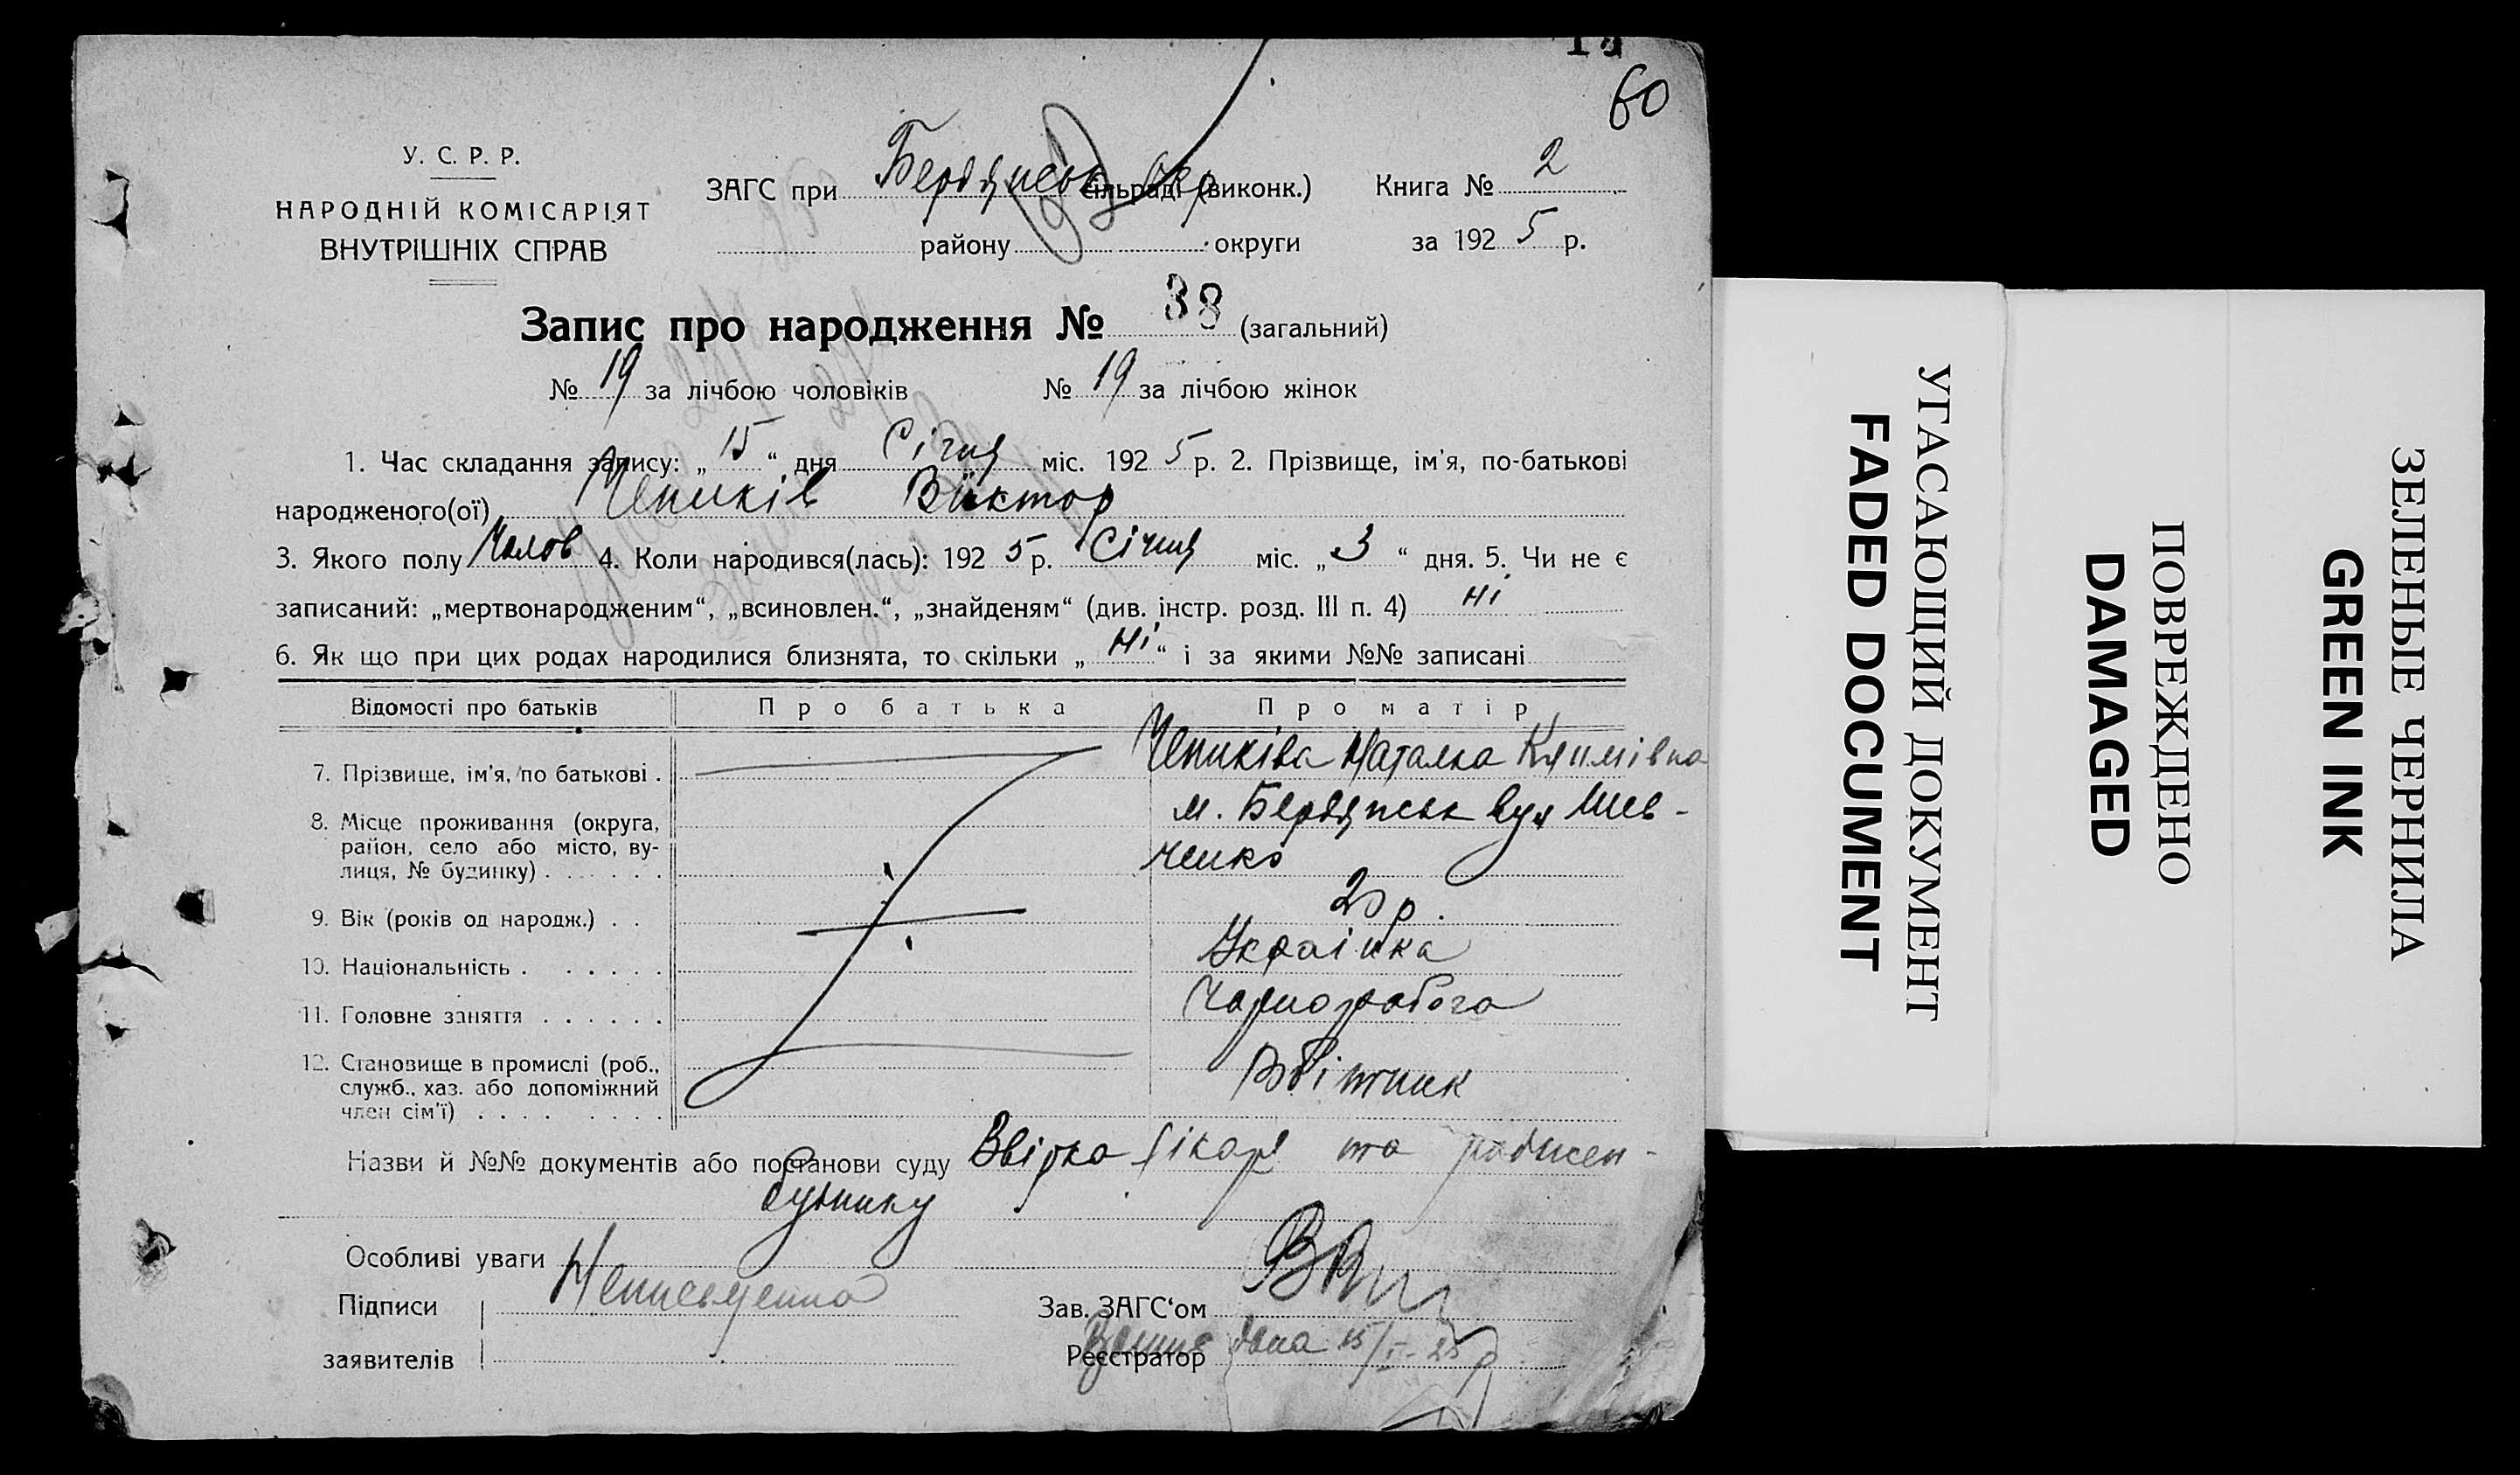 60
У. С. Р. Р.
НАРОДНІЙ КОМІСАРІЯТ
ВНУТРІШНІХ СПРАВ
ЗАГС при Бердянськ сільраді (виконк.) Книга № 2
району округи за 1925 р.
Запис про народження № 38 (загальний)
№ 19 за лічбою чоловіків № 19 за лічбою жінок
1. Час складання запису: „15“ дня Січня міс. 1925 р. 2. Прізвище, ім'я, по-батькові
народженого(ої) Віктор
3. Якого полу Чолов 4. Коли народився(лась): 1925 р. Січня міс. „3“ дня. 5. Чи не є
записаний: „мертвонародженим“, „всиновлен.“, „знайденям“ (див. інстр. розд. III п. 4) ні
6. Як що при цих родах народилися близнята, то скільки „ні“ і за якими №№ записані
Відомості про батьків Про батька Про матір
7. Прізвище, ім'я, по батькові . Наталка Климівна
8. Місце проживання (округа, район, село або місто, вулиця, № будинку) . . . . . . м. Бердянськ вул Шев-
ченко
9. Вік (років од народж.) . . 20 р.
10. Національність . . . . . . Українка
11. Головне заняття . . . . . . Чорноробоча
12. Становище в промислі (роб., служб., хаз. або допоміжний член сім'ї) . . . . . . . .
Назви й №№ документів або постанови суду лікаря та
Особливі уваги
Підписи Неписьменна Зав. ЗАГС'ом
заявителів Реєстратор
УГАСАЮЩИЙ ДОКУМЕНТ
FADED DOCUMENT
ПОВРЕЖДЕНО
DAMAGED
ЗЕЛЕНЫЕ ЧЕРНИЛА
GREEN INK